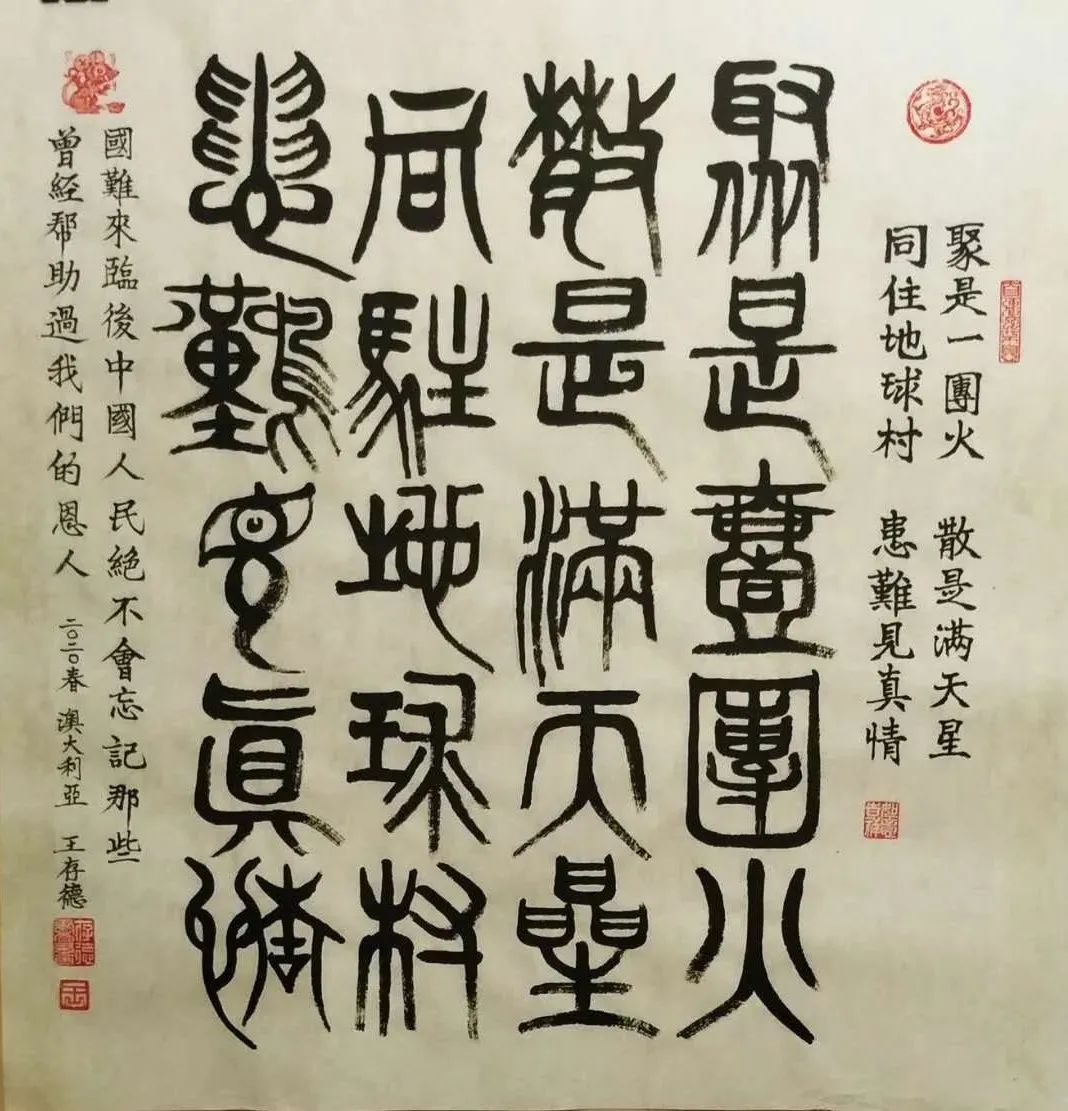 聚是一團火 散是满天星
同住地球村 患難見真情
聚是壹團火
散是滿天星
同駐地球村
患難見眞情
國難來臨後中國人民絕不會忘記那些
曾經帮助過我們的恩人 二〇二〇春 澳大利亞 王存德
王